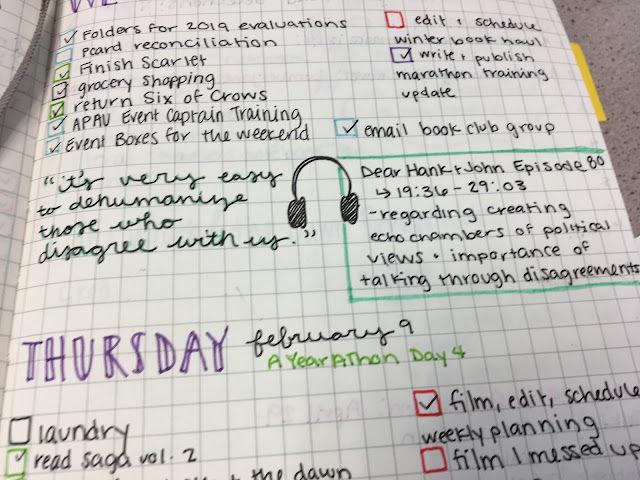 Folders for 2019 evaluations
pcard reconciliation
Finish Scarlet
grocery shopping
return Six of Crows
APAU Event Captain Training
Event Boxes for the weekend
edit + schedule
winter book haul
write + publish
marathon training
update
email book club group
"it's very easy
to dehumanize
those who
disagree with us."
Dear Hank + John Episode 80
↳ 19:36 - 29:03
- regarding creating
echo chambers of political
views + importance of
talking through disagreements
THURSDAY february 9
A Year A Thon Day 4
laundry
read saga vol. 2
the dawn
film, edit, schedule
weekly planning
film I messed up